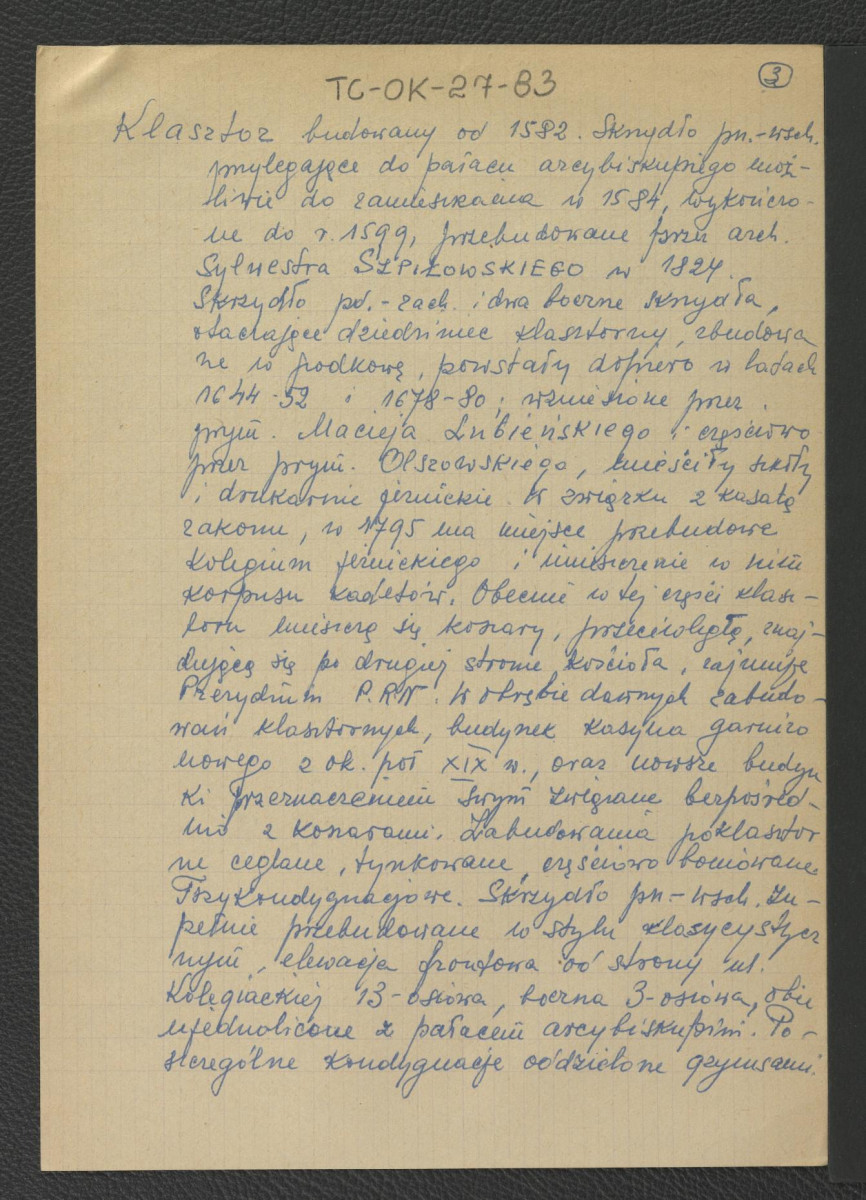 TC-OK-27-83
3
Klasztor budowany od 1582. Skrzydło pn.-wsch.
przylegające do pałacu arcybiskupiego moż-
liwe do zamieszkania w 1584, wykończo-
ne do r. 1599, przebudowane przez arch.
Sylwestra SZPIŁOWSKIEGO w 1824.
Skrzydło pd.-zach. i dwa boczne skrzydła,
otaczające dziedziniec klasztorny, zbudowa
ne w podkowę, powstały dopiero w latach
1644-52 i 1678-80; wzniesione przez
prym. Macieja Łubieńskiego i częściowo
przez prym. Olszowskiego, mieściły szkoły
i drukarnie jezuickie. W związku z kasatą
zakonu, w 1795 ma miejsce przebudowa
Kolegium jezuickiego i umieszczenie w nim
korpusu kadetów. Obecnie w tej części klasz-
toru mieszczą się koszary, przeciwległą, znaj-
dującą się po drugiej stronie kościoła, zajmuje
Prezydium P.R.N. W obrębie dawnych zabudo-
wań klasztornych, budynek kasyna garnizo
nowego z ok. poł XIX w., oraz nowsze budyn
ki przeznaczeniem swym związane bezpośred-
nio z koszarami. Zabudowania poklasztor
ne ceglane, tynkowane, częściowo boniowane.
Trzykondygnacjowe. Skrzydło pn.-wsch. zu-
pełnie przebudowane w stylu klasycystycz
nym, elewacja frontowa od strony ul.
Kolegiackiej 13-osiowa, boczna 3-osiowa, obie
ujednolicone z pałacem arcybiskupim. Po-
szczególne kondygnacje oddzielone gzymsami.